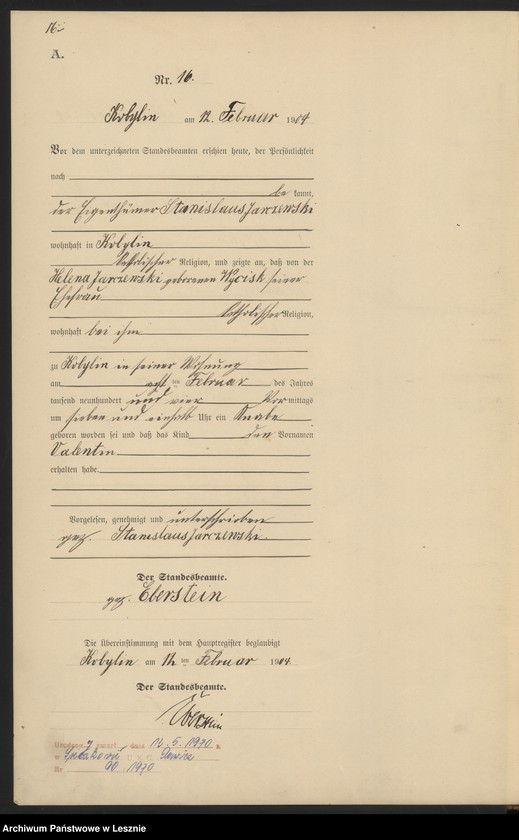 16.
A.
Nr. 16.
Kobylin am 12. Februar 1904
Vor dem unterzeichneten Standesbeamten erschien heute, der Persönlichkeit
nach
be kannt,
der Eigenthümer Stanislaus Jarczewski
wohnhaft in Kobylin
katholischer Religion, und zeigte an, daß von der
Helena Jarczewski geborenen Wycisk seiner
Ehefrau
katholischer Religion,
wohnhaft bei ihm
zu Kobylin in seiner Wohnung
am acht ten Februar des Jahres
tausend neunhundert und vier Vor mittags
um sieben und einhalb Uhr ein Knabe
geboren worden sei und daß das Kind den Vornamen
Valentin
erhalten habe.
Vorgelesen, genehmigt und unterschrieben
gez. Stanislaus Jarczewski.
Der Standesbeamte.
gez. Eberstein
Die Übereinstimmung mit dem Hauptregister beglaubigt
Kobylin am 12 ten Februar 1904.
Der Standesbeamte.
Eberstein
dnia 12.5.1970 r.
Nr 90/1970
Archiwum Państwowe w Lesznie